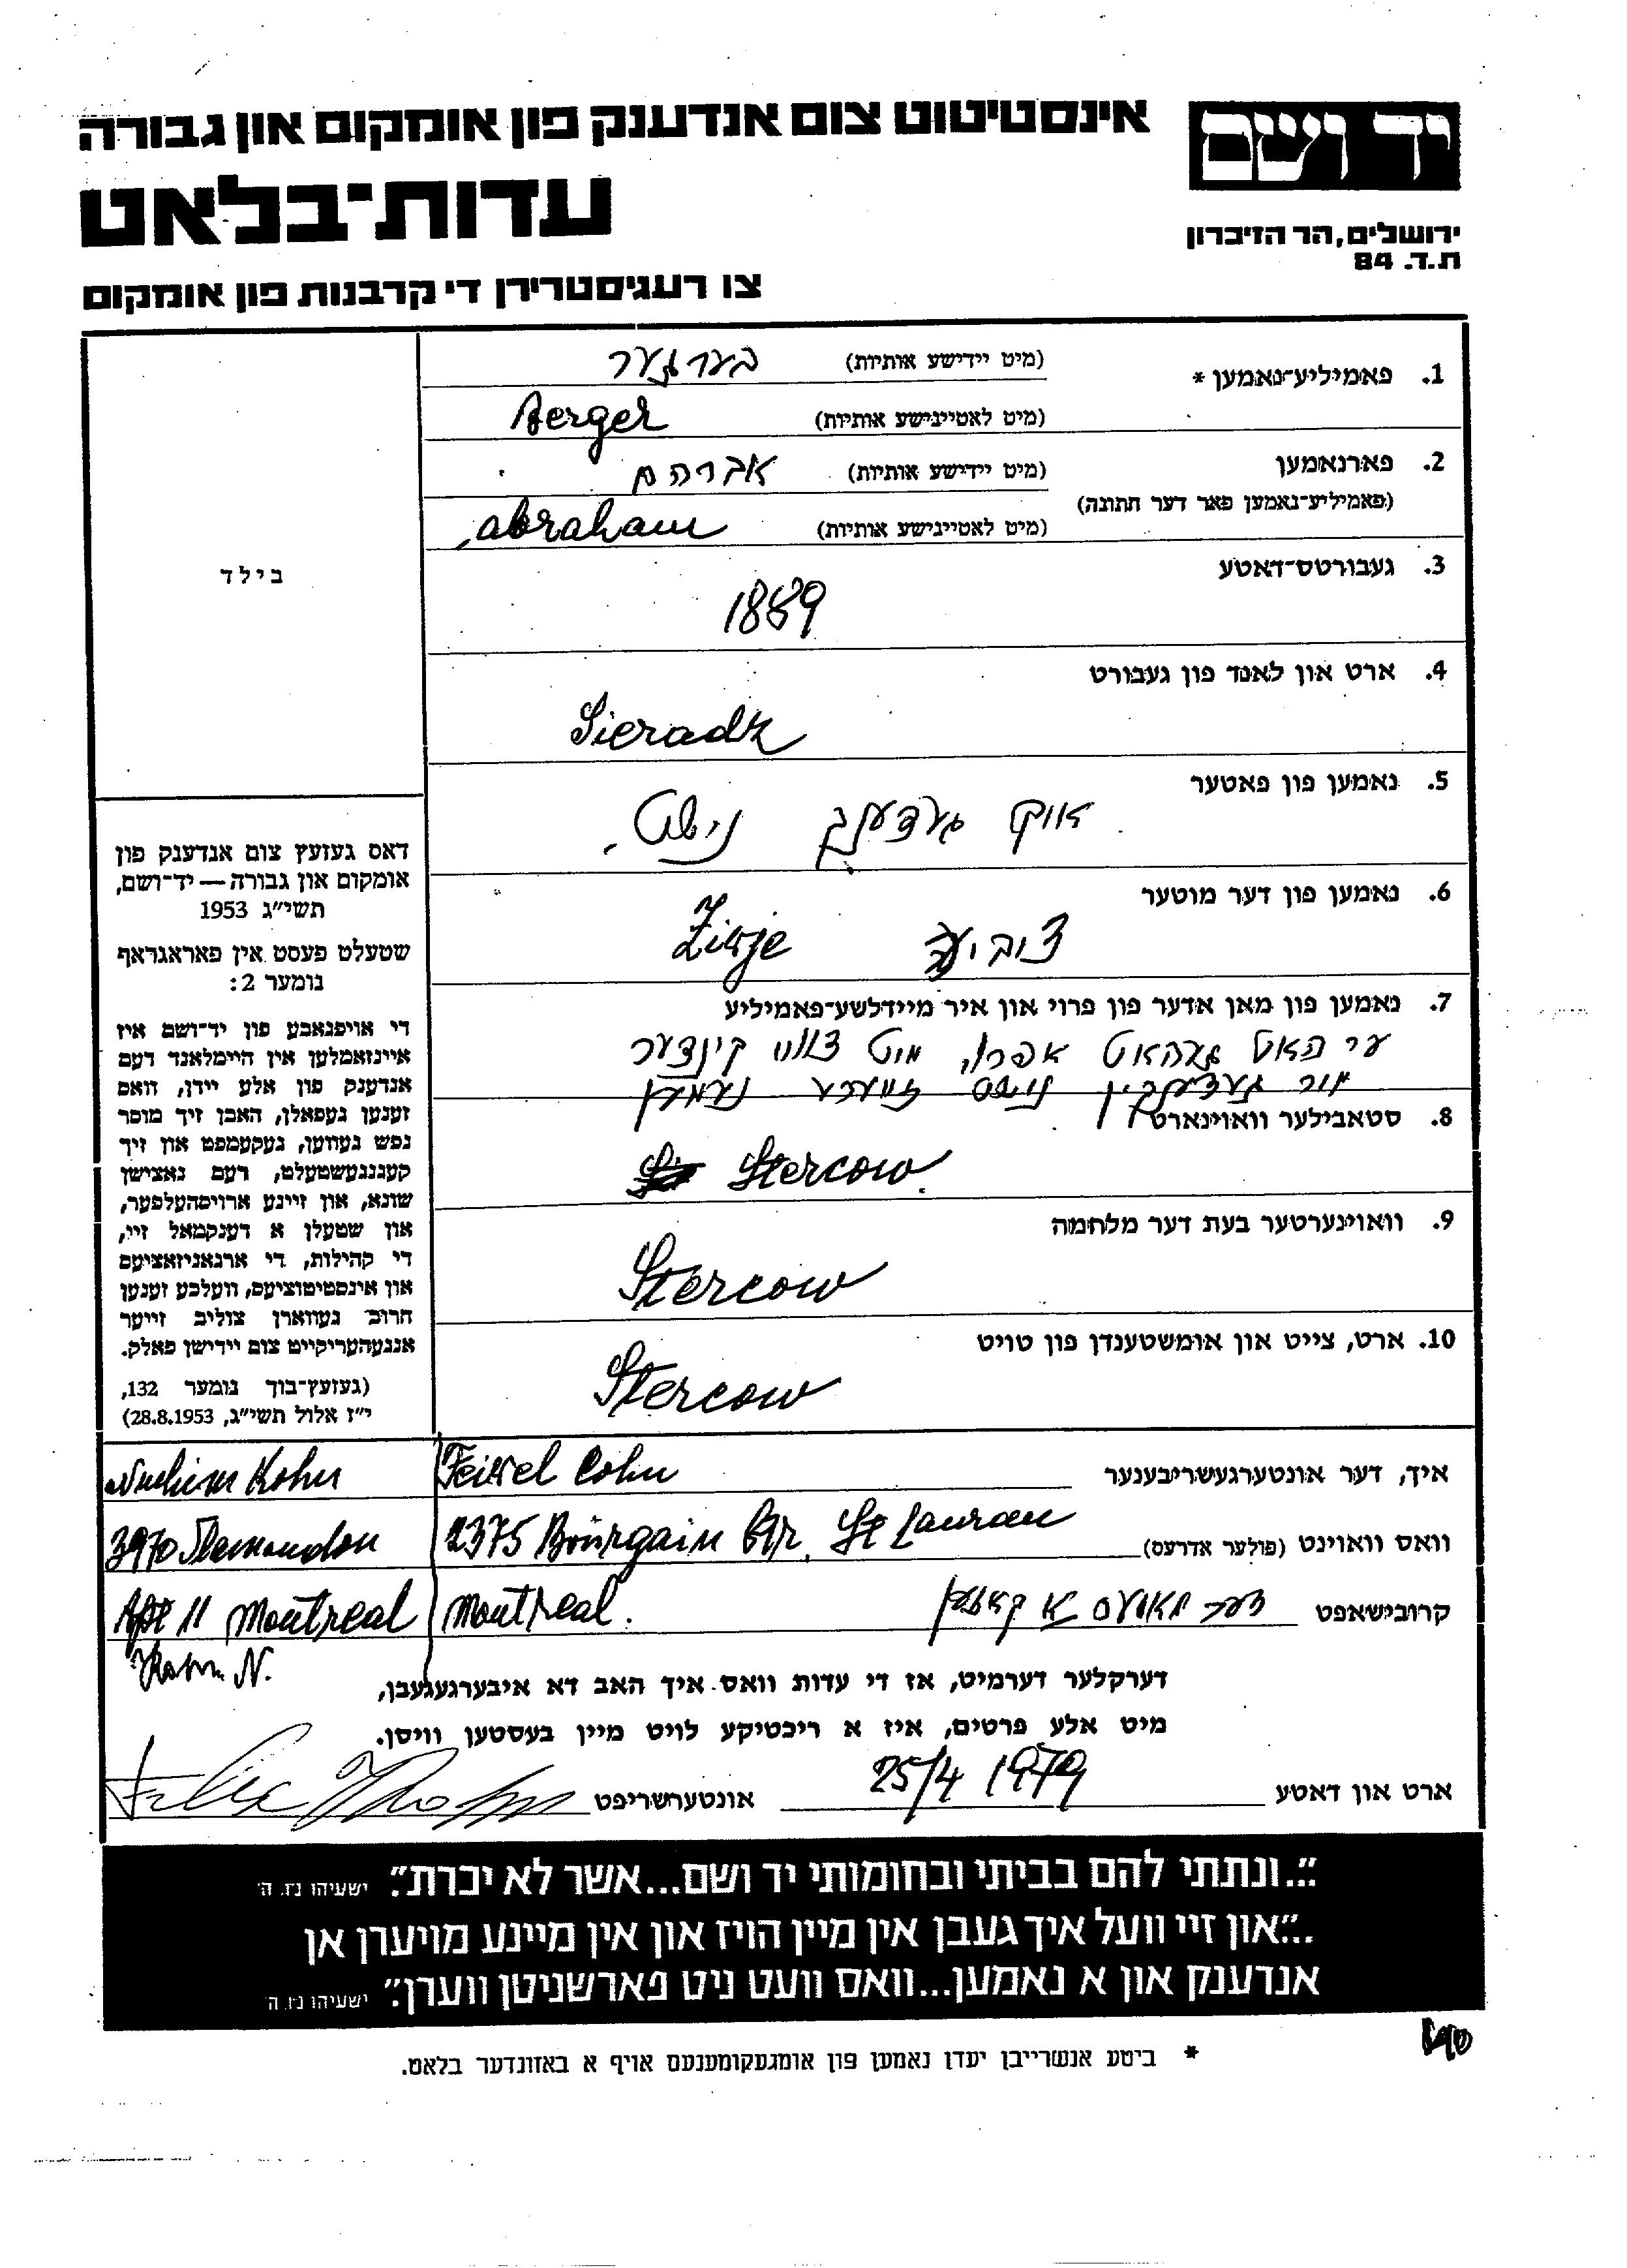 יד ושם
ירושלים, הר הזיכרון
ת.ד. 84
אינסטיטוט צום אנדענק פון אומקום און גבורה
עדות־בלאט
צו רעגיסטרירן די קרבנות פון אומקום
1. פאמיליע־נאמען * (מיט יידישע אותיות) בערגער
(מיט לאטיינישע אותיות) Berger
2. פארנאמען (מיט יידישע אותיות) אברהם
(פאמיליע־נאמען פאר דער חתונה) (מיט לאטיינישע אותיות) abraham
3. געבורטס־דאטע
1889
4. ארט און לאנד פון געבורט
Sieradz
5. נאמען פון פאטער
נישט.
6. נאמען פון דער מוטער
צוביע Ziwje
7. נאמען פון מאן אדער פון פרוי און איר מיידלשע־פאמיליע
ער האט געהאט א פרוי, מיט צוויי קינדער
נישט זייערע נעמען
8. סטאבילער וואוינארט
Stercow.
9. וואוינערטער בעת דער מלחמה
Stercow
10. ארט, צייט און אומשטענדן פון טויט
Stercow
בילד
דאס געזעץ צום אנדענק פון
אומקום און גבורה — יד־ושם,
תשי״ג 1953
שטעלט פעסט אין פאראגראף
נומער 2:
די אויפגאבע פון יד־ושם איז
איינזאמלען אין היימלאנד דעם
אנדענק פון אלע יידן, וואס
זענען געפאלן, האבן זיך מוסר
נפש געווען, געקעמפט און זיך
קעגנגעשטעלט, דעם נאצישן
שונא, און זיינע ארויסהעלפער,
און שטעלן א דענקמאל זיי,
די קהילות, די ארגאניזאציעס
און אינסטיטוציעס, וועלכע זענען
חרוב געווארן צוליב זייער
אנגעהעריקייט צום יידישן פאלק.
(געזעץ־בוך נומער 132,
י״ז אלול תשי״ג, 28.8.1953)
איך, דער אונטערגעשריבענער Feiwel Cohn Kohn
וואס וואוינט (פולער אדרעס) 2375 Bourgain Str. St Lauran 3970
קרובישאפט Montreal. Apt 11 Montreal
Kohn N.
דערקלער דערמיט, אז די עדות וואס איך האב דא איבערגעגעבן,
מיט אלע פרטים, איז א ריכטיקע לויט מיין בעסטען וויסן.
ארט און דאטע 25/4 1979 אונטערשריפט
״...ונתתי להם בביתי ובחומותי יד ושם...אשר לא יכרת״. ישעיהו נז. ה׳
״...און זיי וועל איך געבן אין מיין הויז און אין מיינע מויערן אן
אנדענק און א נאמען...וואס וועט ניט פארשניטן ווערן״. ישעיהו נז. ה׳
* ביטע אנשרייבן יעדן נאמען פון אומגעקומענעם אויף א באזונדער בלאט.